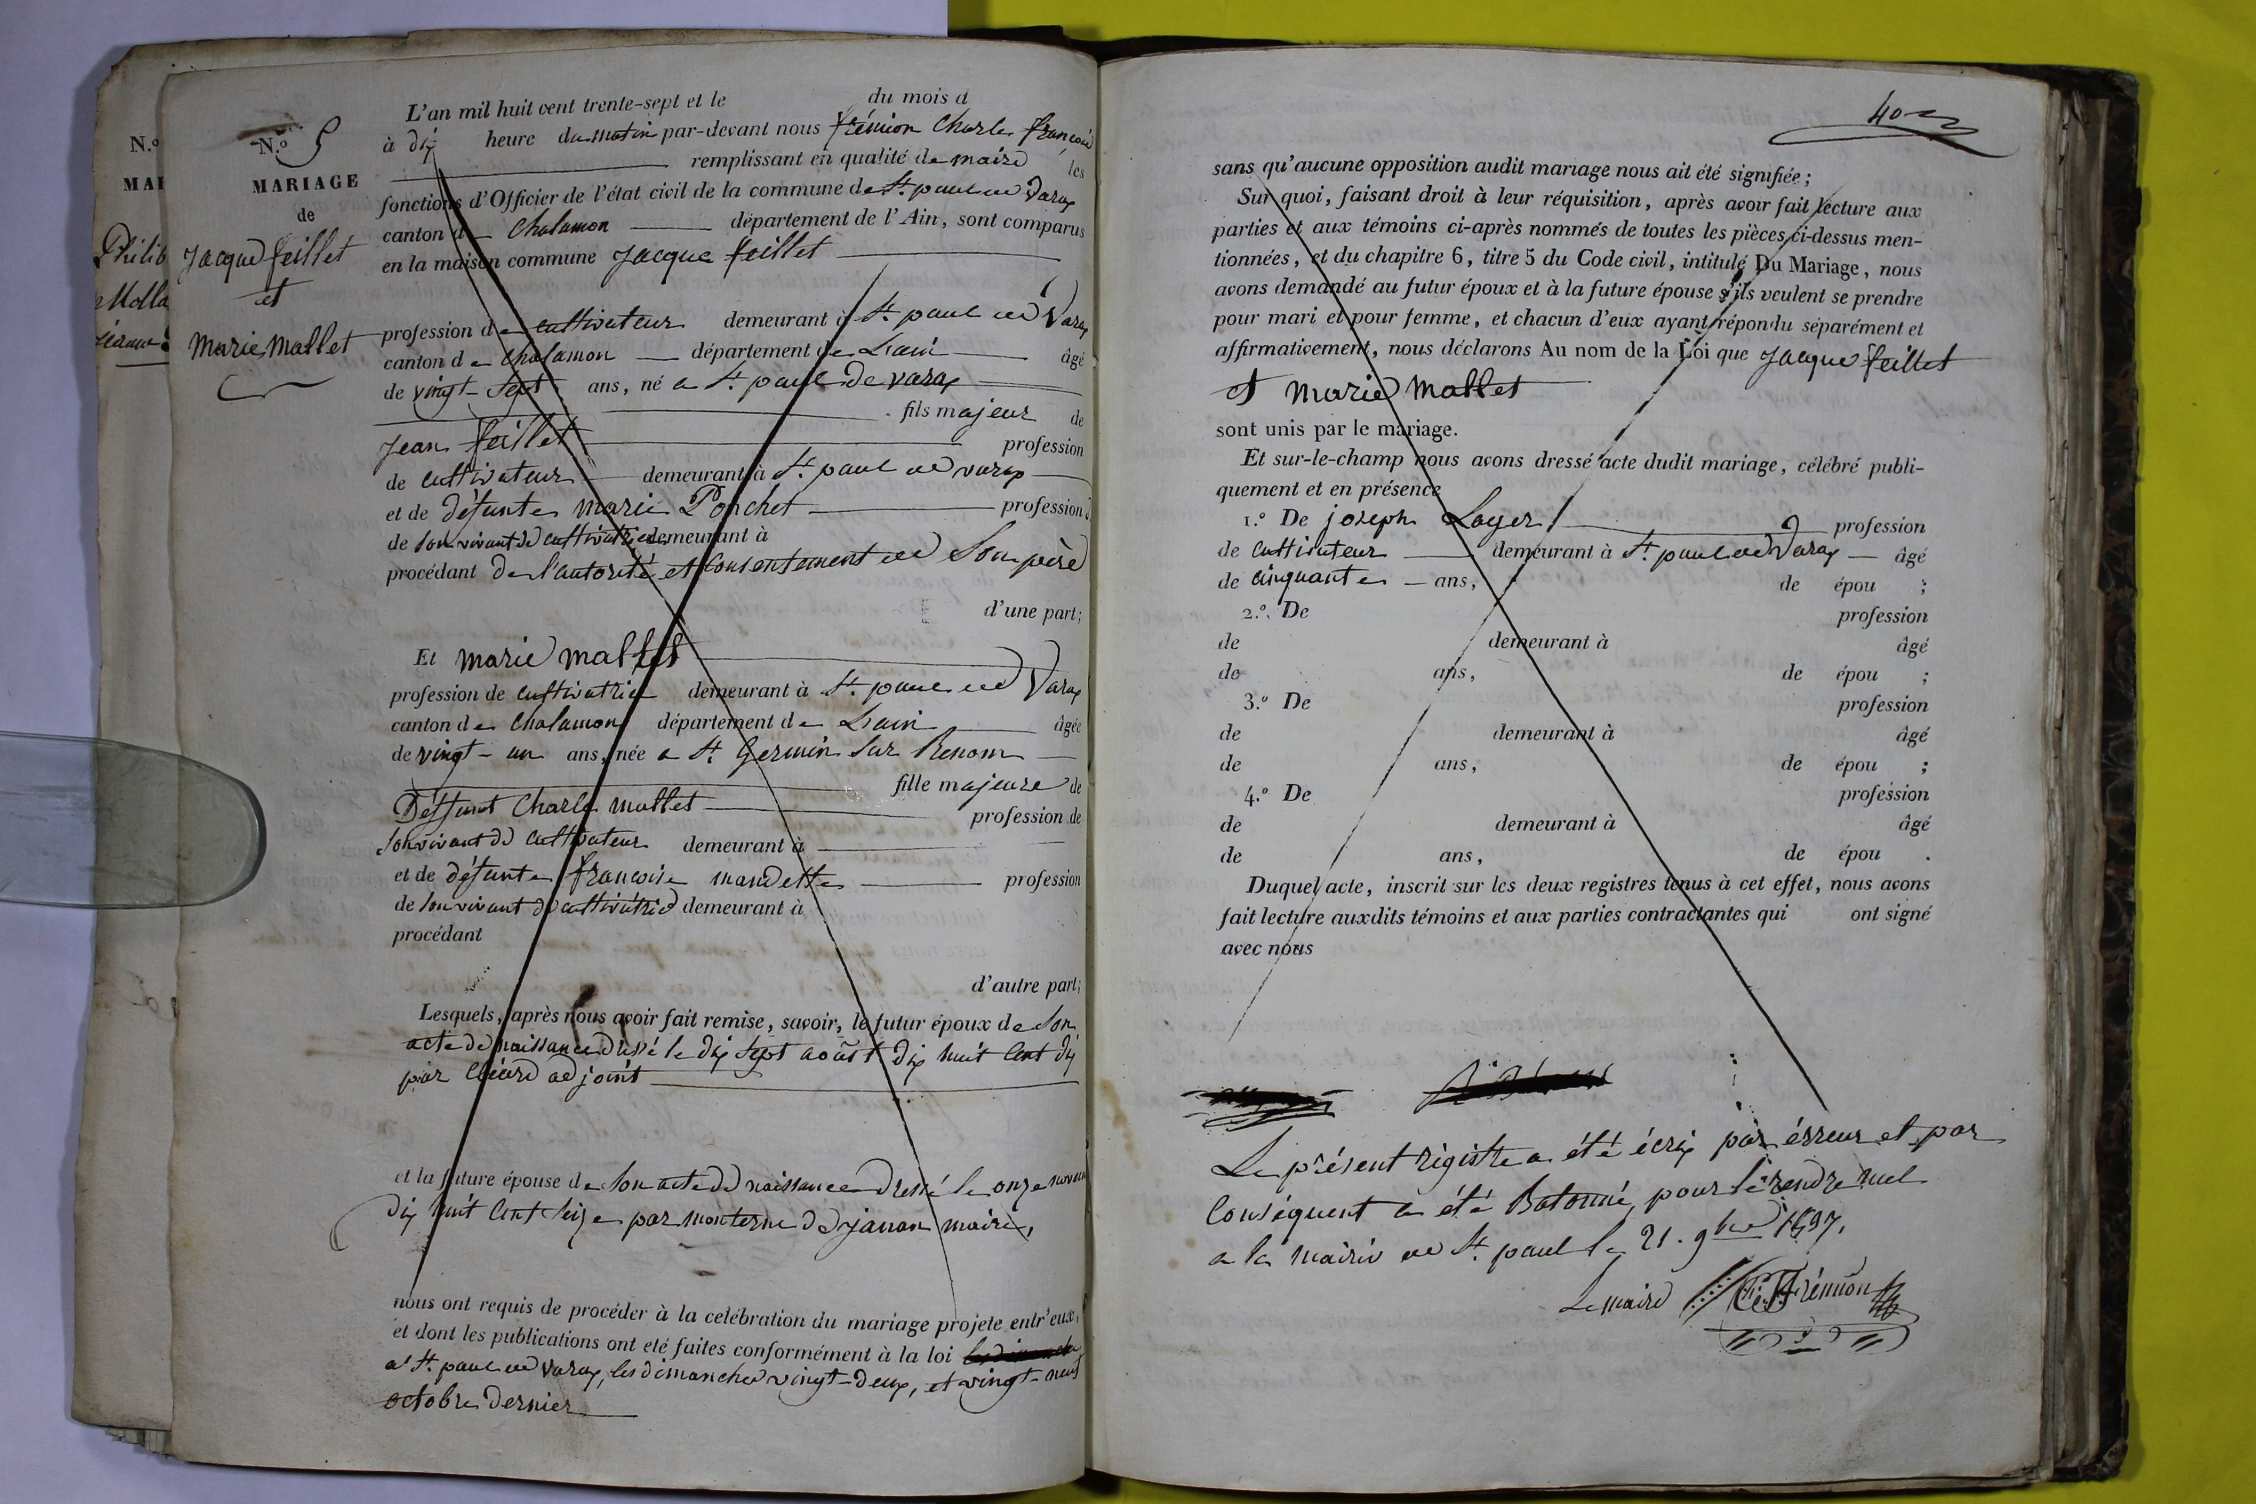 N.º
MAI
Philib
Molla
Jeanne
N.º 5
MARIAGE
de
Jacque feillet
et
Marie Mallet
L'an mil huit cent trente-sept et le du mois d
à dix heure du matin par-devant nous frémion Charle françois
remplissant en qualité de maire les
fonctions d'Officier de l'état civil de la commune de St. paul de Varax
canton de Chalamon département de l'Ain, sont comparus
en la maison commune Jacque feillet
profession de cultivateur demeurant à St. paul de Varax
canton de Chalamon département de L'ain âgé
de vingt-sept ans, né a St. paul de varax
fils majeur de
Jean feillet profession
de cultivateur demeurant à St. paul de varax
et de défunte marie Ponchet profession
de son vivant de cultivatrice demeurant à
procédant de l'autorité et consentement de son père
d'une part;
Et marie mallet
profession de cultivatrice demeurant à St. paul de Varax
canton de Chalamon département de L'ain âgée
de vingt-un ans, née a St. Germin sur Renom
fille majeure de
Deffunt Charle mallet profession de
son vivant de cultivateur demeurant à
et de défunte françoise mandette profession
de son vivant de cultivatrice demeurant à
procédant
d'autre part;
Lesquels, après nous avoir fait remise, savoir, le futur époux de son
acte de naissance dressé le dix sept août dix huit cent dix
par adjoint
et la future épouse de son acte de naissance dressé le onze novem
dix huit cent seize par monterne de janan maire,
nous ont requis de procéder à la celébration du mariage projeté entr'eux,
et dont les publications ont été faites conformément à la loi
a St. paul de varax, les dimanche vingt-deux, et vingt-neuf
octobre dernier
40
sans qu'aucune opposition audit mariage nous ait été signifiée;
Sur quoi, faisant droit à leur réquisition, après avoir fait lecture aux
parties et aux témoins ci-après nommés de toutes les pièces ci-dessus men-
tionnées, et du chapitre 6, titre 5 du Code civil, intitulé Du Mariage, nous
avons demandé au futur époux et à la future épouse s'ils veulent se prendre
pour mari et pour femme, et chacun d'eux ayant répondu séparément et
affirmativement, nous déclarons Au nom de la Loi que Jacque feillet
et marie mallet
sont unis par le mariage.
Et sur-le-champ nous avons dressé acte dudit mariage, célébré publi-
quement et en présence
1.º De joseph Layer profession
de cultivateur demeurant à St. paul de Varax âgé
de cinquante ans, de épou ;
2.º De profession
de demeurant à âgé
de ans, de épou ;
3.º De profession
de demeurant à âgé
de ans, de épou ;
4.º De profession
de demeurant à âgé
de ans, de épou .
Duquel acte, inscrit sur les deux registres tenus à cet effet, nous avons
fait lecture auxdits témoins et aux parties contractantes qui ont signé
avec nous
Le présent rigistre a été écrix par érreur et par
conséquent a été Batonné, pour le rendre nuel
a la mairie de St. paul le 21. 9bre 1837.
Le maire Ce Frémion